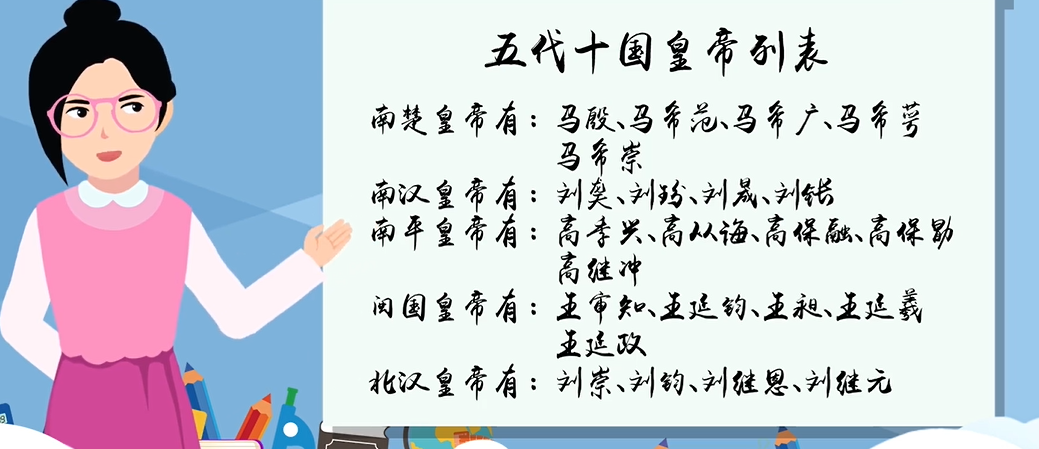 五代十国皇帝列表
南楚皇帝有：马殷、马希范、马希广、马希萼
马希崇
南汉皇帝有：刘䶮、刘玢、刘晟、刘鋹
南平皇帝有：高季兴、高从诲、高保融、高保勖
高继冲
闵国皇帝有：王审知、王延钧、王昶、王延羲
王延政
北汉皇帝有：刘崇、刘钧、刘继恩、刘继元